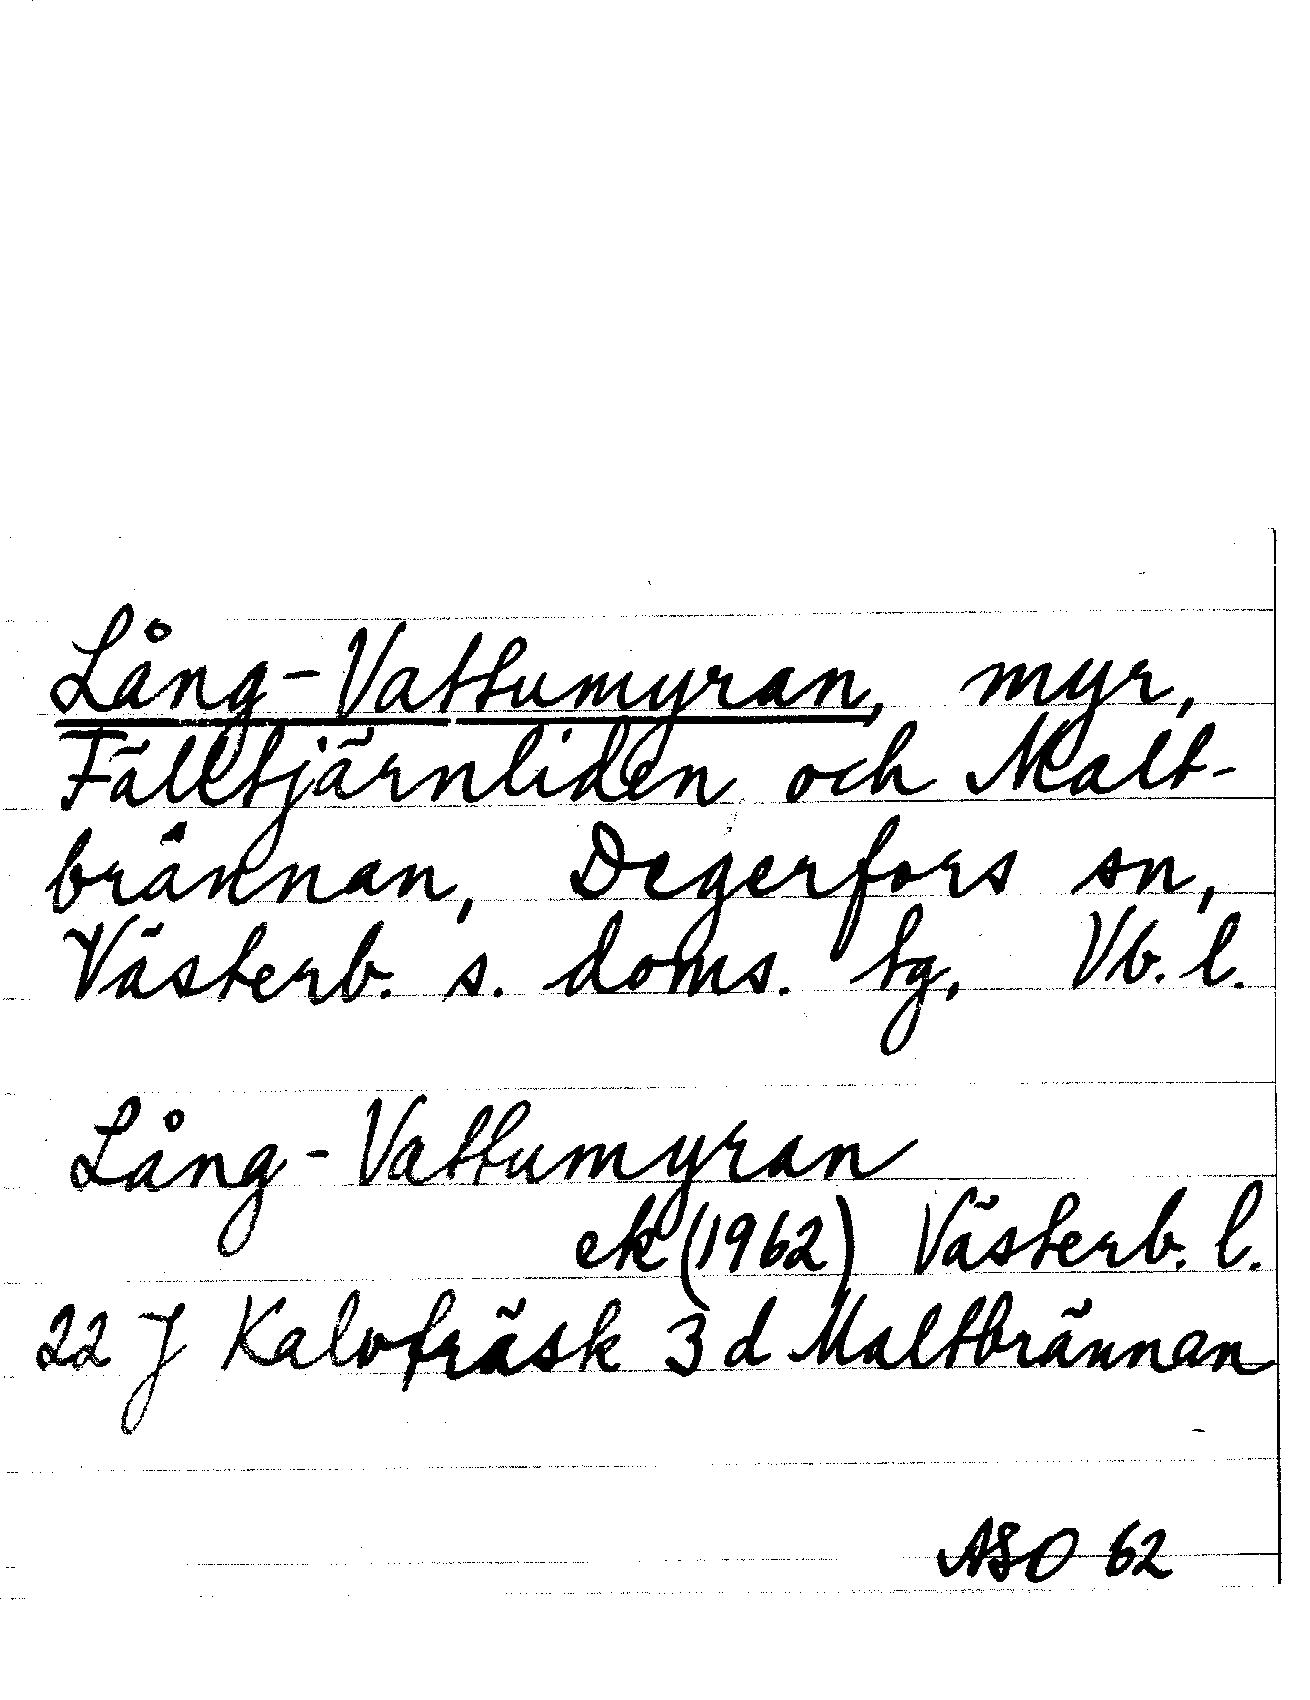 Lång-Vattumyran, myr,
Fälltjärnliden och Malt-
brännan, Degerfors sn,
Västerb. s. doms. tg, Vb. l.
Lång-Vattumyran
ek (1962) Västerb. l.
22 J Kalvträsk 3 d Maltbrännan
ASO 62